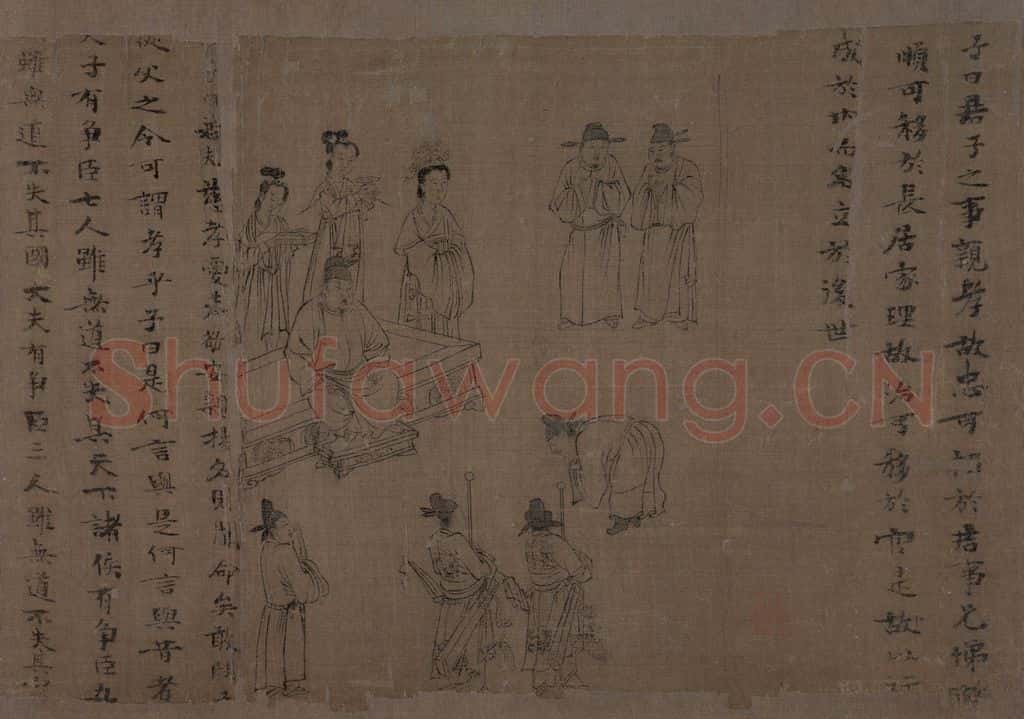 子曰君子之事親孝故忠可移於君事兄悌故
順可移於長居家理故治可移於官是故
成於內而名立於後世
夫慈孝愛恭敬安親揚名則聞命矣敢問子
從父之令可謂孝乎子曰是何言與是何言與昔者
天子有爭臣七人雖無道不失其天下諸侯有爭臣五
雖無道不失其國大夫有爭臣三人雖無道不失其
Shufawang.CN